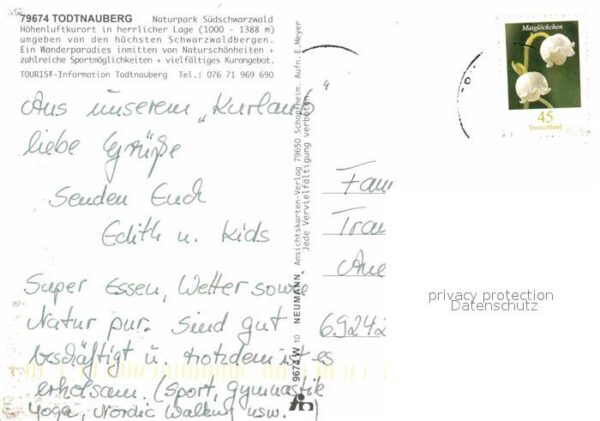 79674 TODTNAUBERG Naturpark Südschwarzwald
Höhenluftkurort in herrlicher Lage (1000 - 1388 m)
umgeben von den höchsten Schwarzwaldbergen.
Ein Wanderparadies inmitten von Naturschönheiten +
zahlreiche Sportmöglichkeiten + vielfältiges Kurangebot.
TOURIST-Information Todtnauberg Tel.: 076 71 969 690
Aus unserem "Kurlaub"
liebe Grüße
Senden Euch
Edith u. Kids
Super Essen, Wetter sowie
Natur pur. Sind gut
beschäftigt u. trotzdem ist es
erholsam. (Sport, Gymnastik
Yoga, Nordic Walking usw.)
9674 W 10 NEUMANN Ansichtskarten-Verlag 79650 Schopfheim. Aufn. E.Meyer
Jede Vervielfältigung verboten.
Maiglöckchen
45
Deutschland
Fam
Trau
Aue
69242
privacy protection
Datenschutz